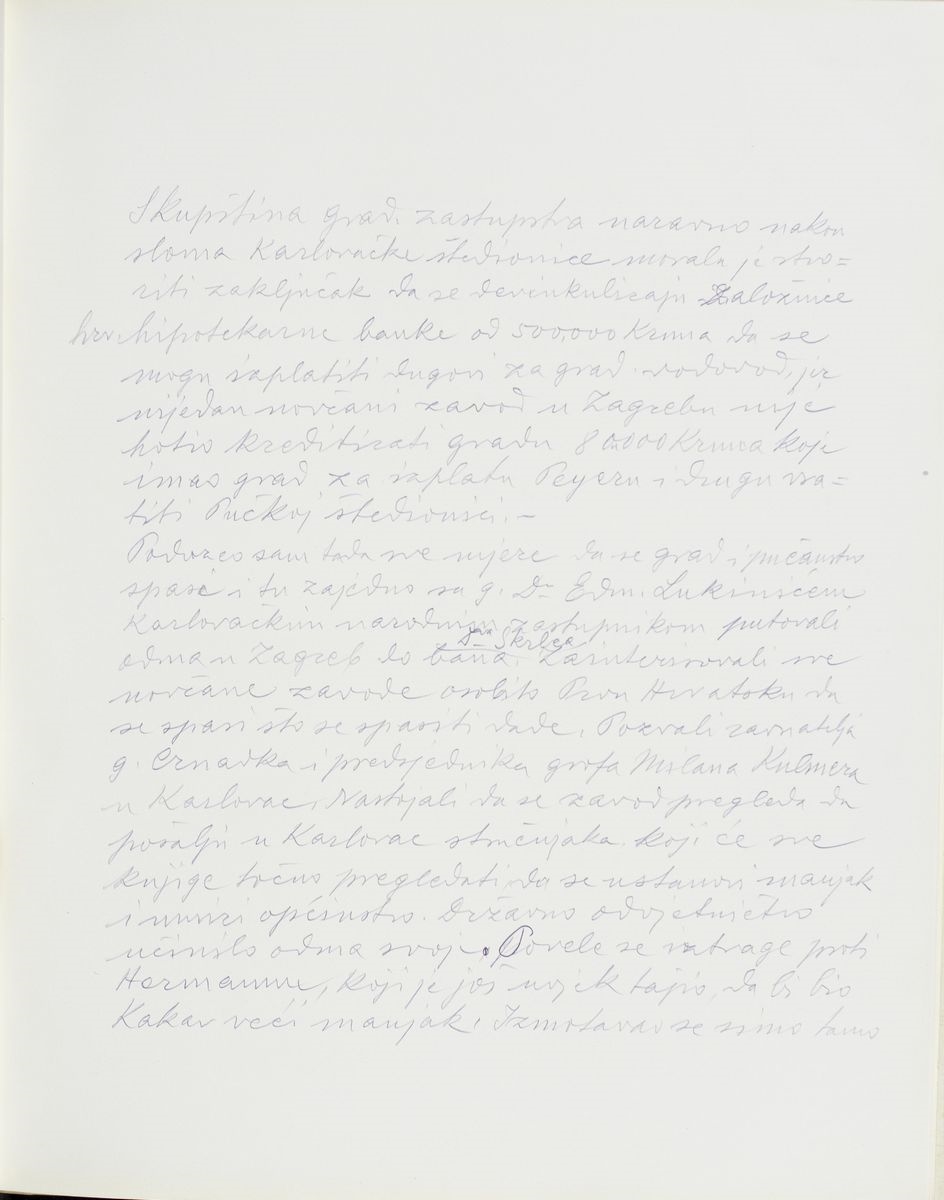 Skupština grad. zastupstva naravno nakon
sloma Karlovačke štedionice morala je stvo=
riti zaključak da se devinkulicaju Založnice
hrv. hipotekarne banke od 500,000 Kruna da se
mogu isplatiti dugovi za grad. vodovod, jer
nijedan novčani zavod u Zagrebu nije
hotio kreditirati gradu 80.000 Kruna koje
imao grad za isplatu Peyeru i drugu vra=
titi Pučkoj štedionici. –
Poduzeo sam tada sve mjere da se grad i pučanstvo
spase i tu zajedno sa g. Dr Edm. Lukinićem
Karlovačkim narodnim zastupnikom putovali
odma u Zagreb do bana Dra Škrleca. Zainteresovali sve
novčane zavode osobito Prvu Hrvatsku da
se spasi što se spasiti dade. Pozvali ravnatelja
g. Crnadka i predsjednika grofa Milana Kulmera
u Karlovac. Nastojali da se zavod pregleda da
pošalju u Karlovac stručnjaka koji će sve
knjige točno pregledati da se ustanovi manjak
i umiri općinstvo. Državno odvjetničtvo
učinilo odma svoje. Povele se iztrage proti
Hermannu, koji je još uvjek tajio, da bi bio
kakav veći manjak. Izmotavao se simo tamo